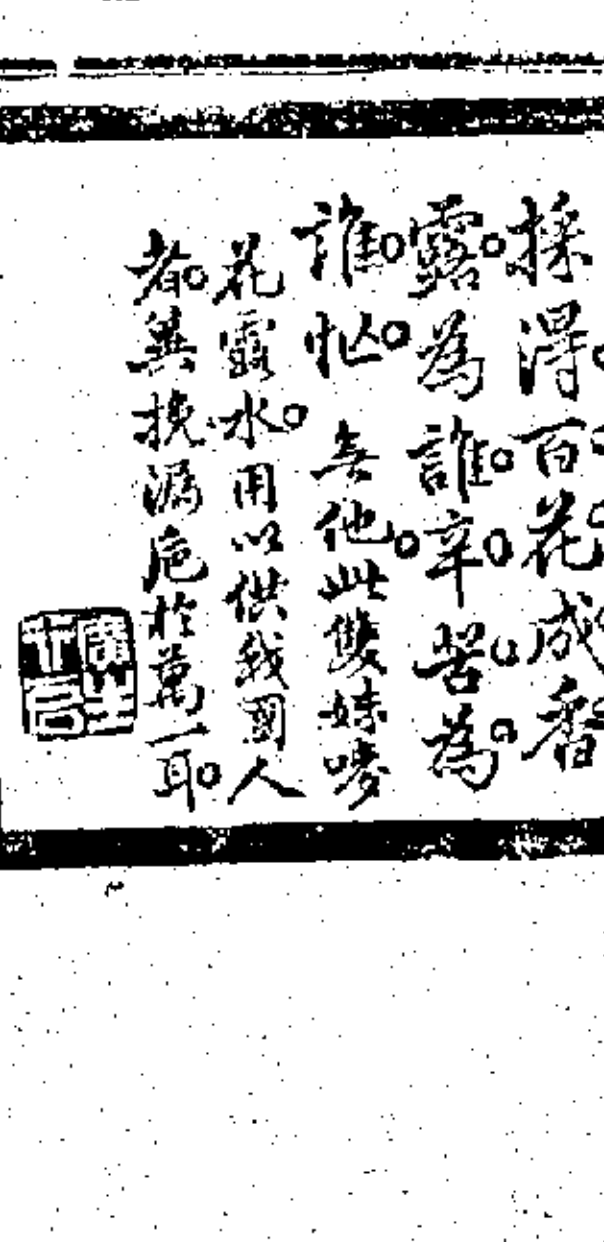 採得百花成香
露為誰辛苦為
誰忙 無他此雙妹嘜
花露水用以供我國人
者冀挽漏卮於萬一耳
廣生